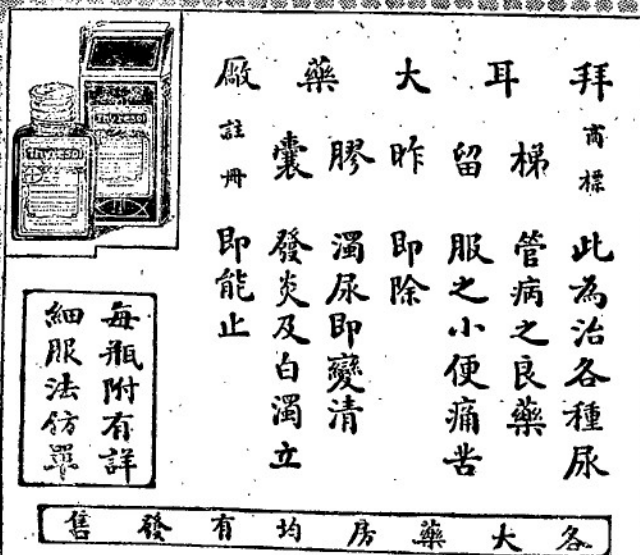 拜耳大藥廠
商標
梯留昨膠囊
註冊
此為治各種尿
管病之良藥
服之小便痛苦
即除
濁尿即變清
發炎及白濁立
即能止
Thyresol
Thyresol
每瓶附有詳
細服法仿單
各大藥房均有發售